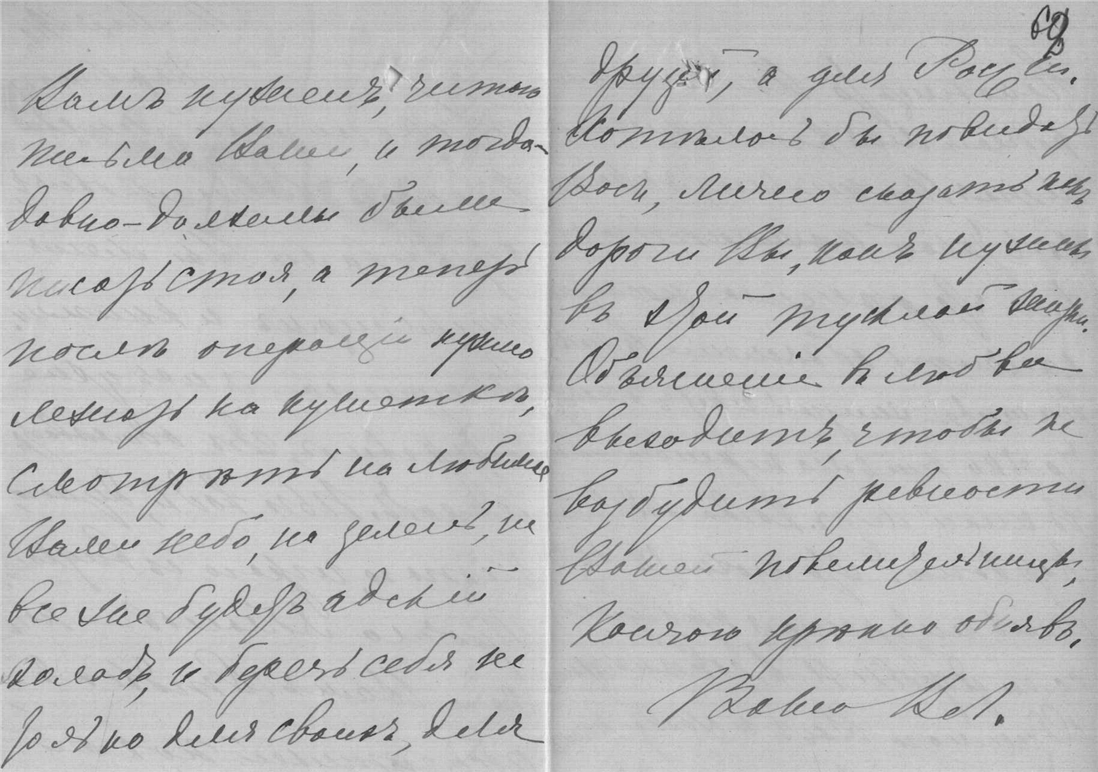 Вамъ нуженъ, читаю
письма Ваши, и тогда-
давно-должны были
писать стоя, а теперь
послѣ операціи нужно
лежать на кушеткѣ,
смотрѣть на любимое
Вами небо, на зелень, не
все же будетъ адскій
холодъ, и беречь себя не
только для своихъ, для
друзей, а для Россіи.
Хотѣлось бы повидать
Васъ, лично сказать какъ
дороги Вы, какъ нужны
въ этой тусклой жизни.
Объясненіе въ любви
выходитъ, чтобы не
возбудить ревности
Вашей повелительницы,
кончаю крѣпко обнявъ.
Ваша
68